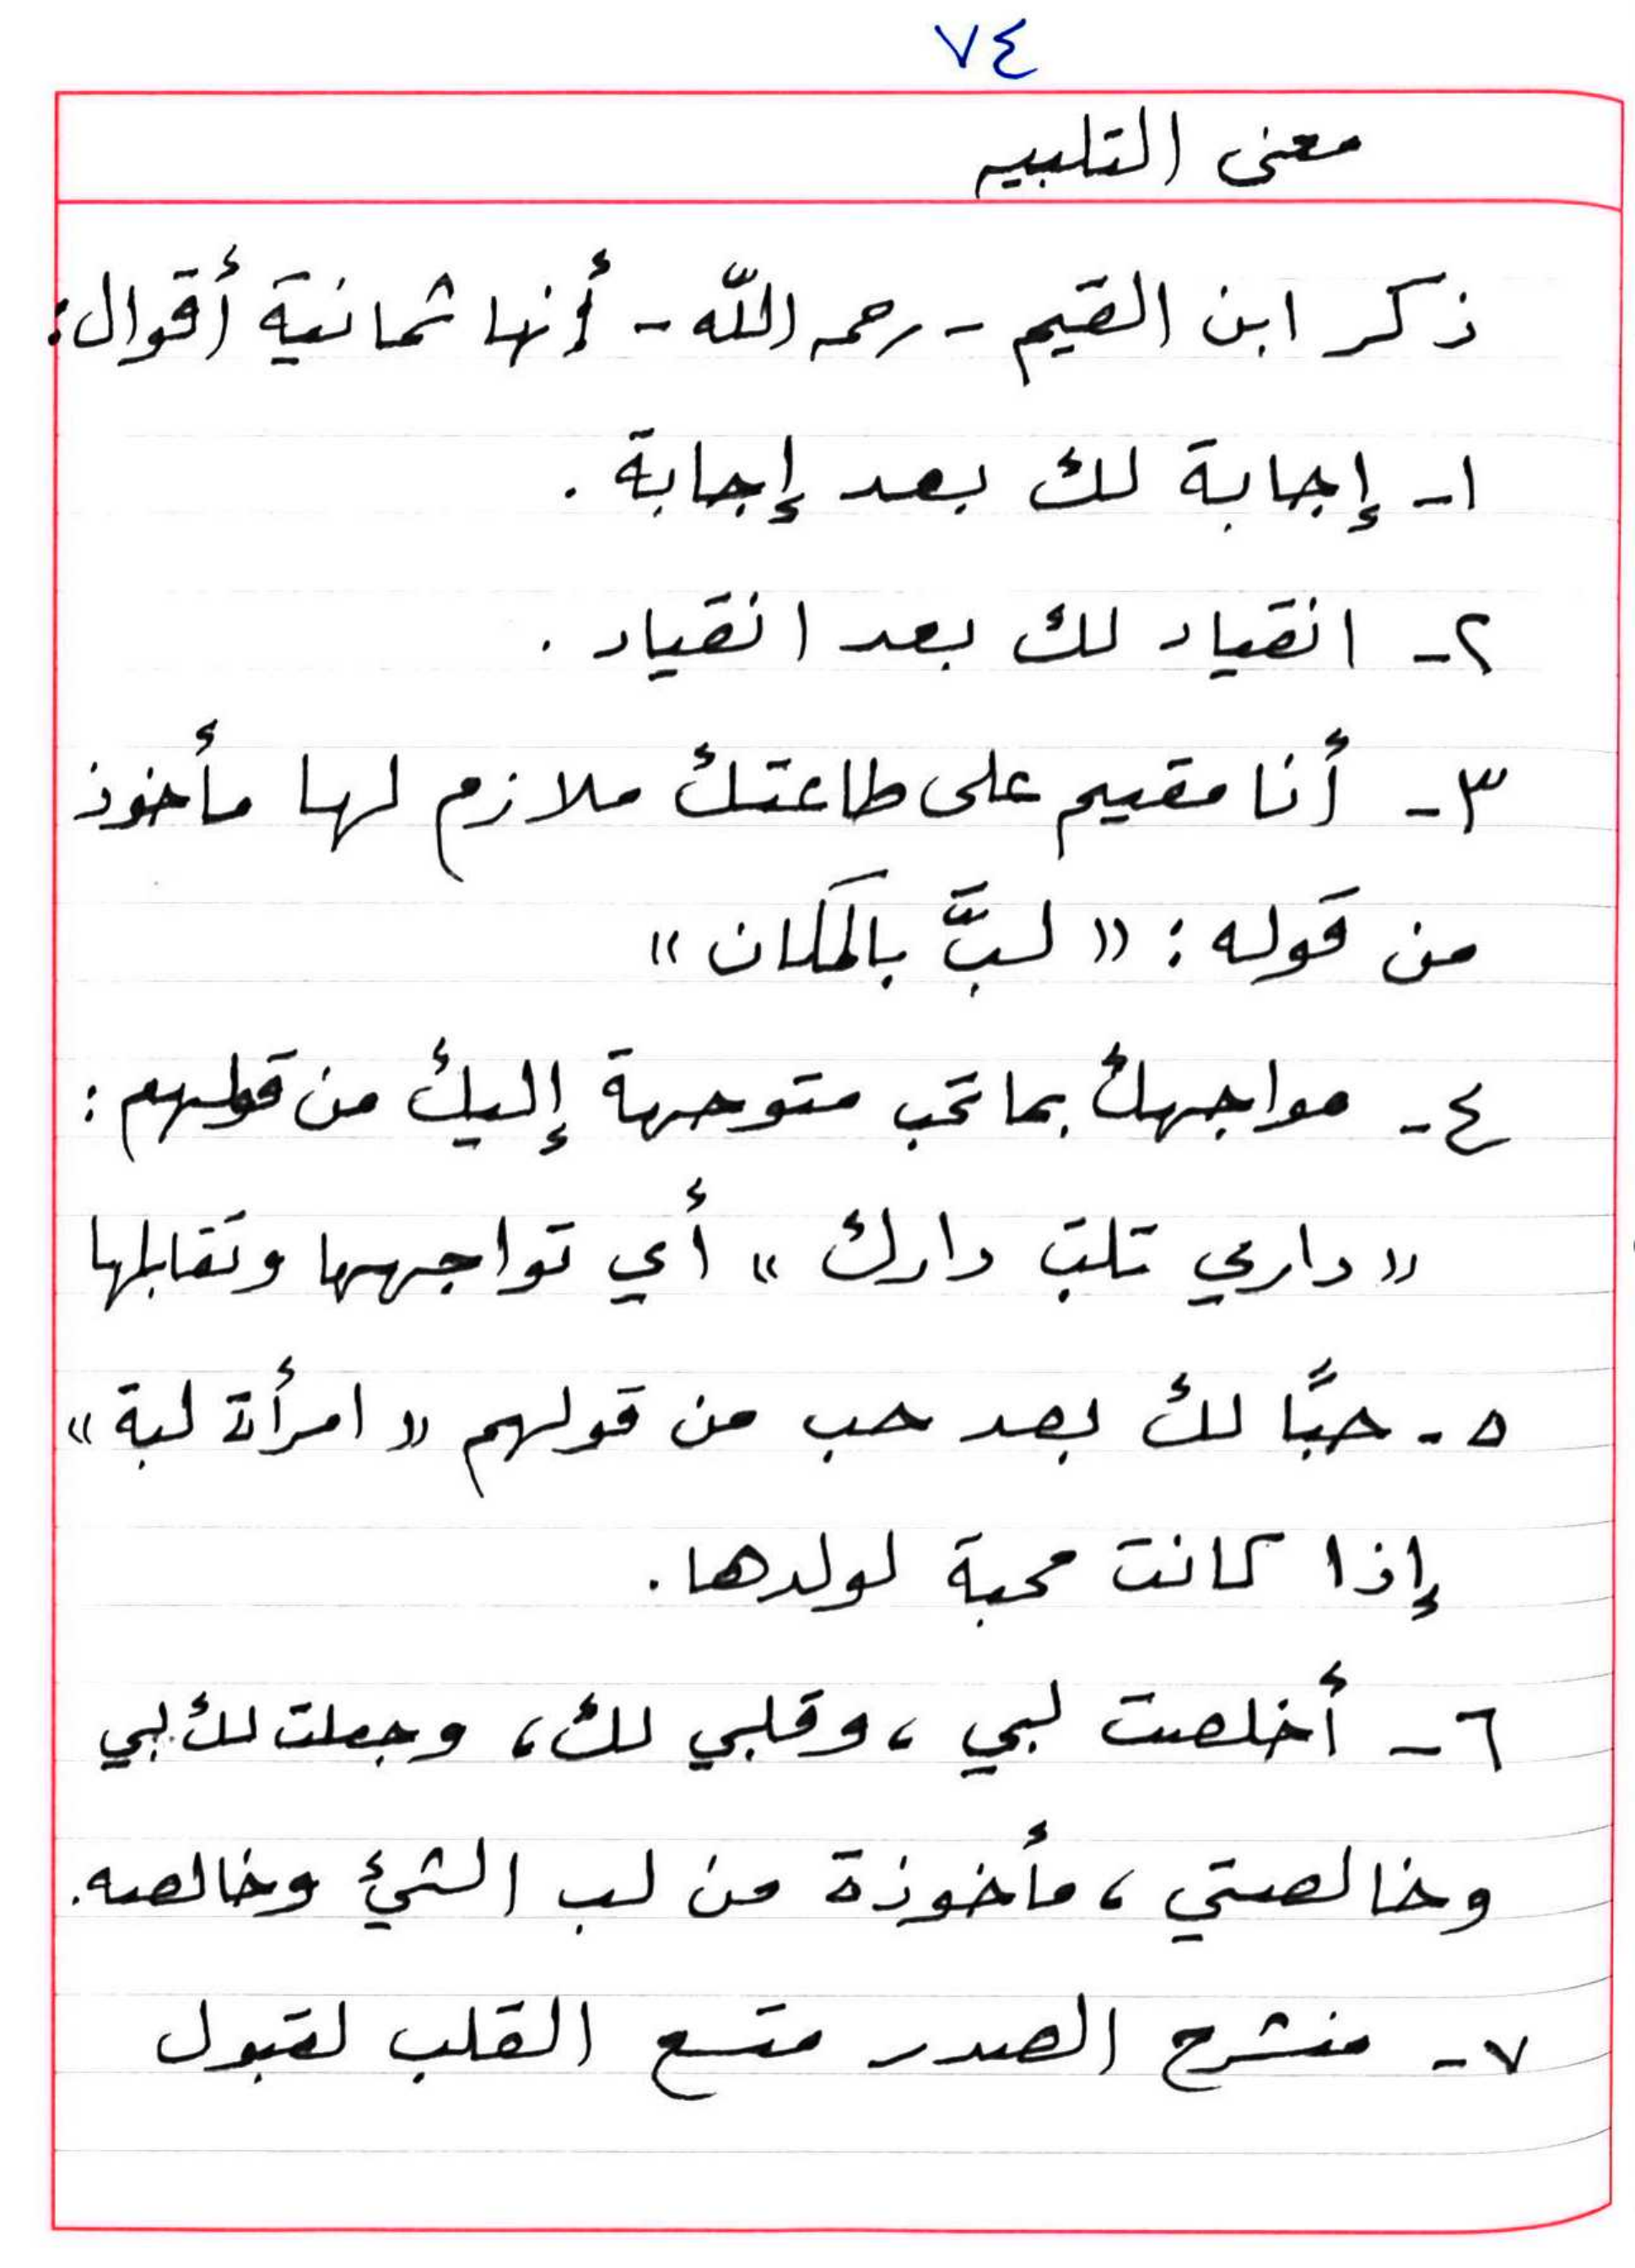 ٧٤
معنى التلبيه
ذكر ابن القيم - رحمه الله - أنها ثمانية أقوال:
١- إجابة لك بعد إجابة .
٢- انقياد لك بعد انقياد .
٣- أنا مقيم على طاعتك ملازم لها مأخوذ
من قوله : « لبَّ بالمَكان »
٤- مواجهك بما تحب متوجهة إليك من قولهم :
« داري تلبّ دارك » أي تواجهها وتقابلها
٥- حبًّا لك بعد حب من قولهم « امرأة لبة »
إذا كانت محبة لولدها .
٦- أخلصت لبي ، وقلبي لك ، وجعلت لك لبي
وخالصتي ، مأخوذة من لب الشئ وخالصه .
٧- منشرح الصدر متسع القلب لقبول